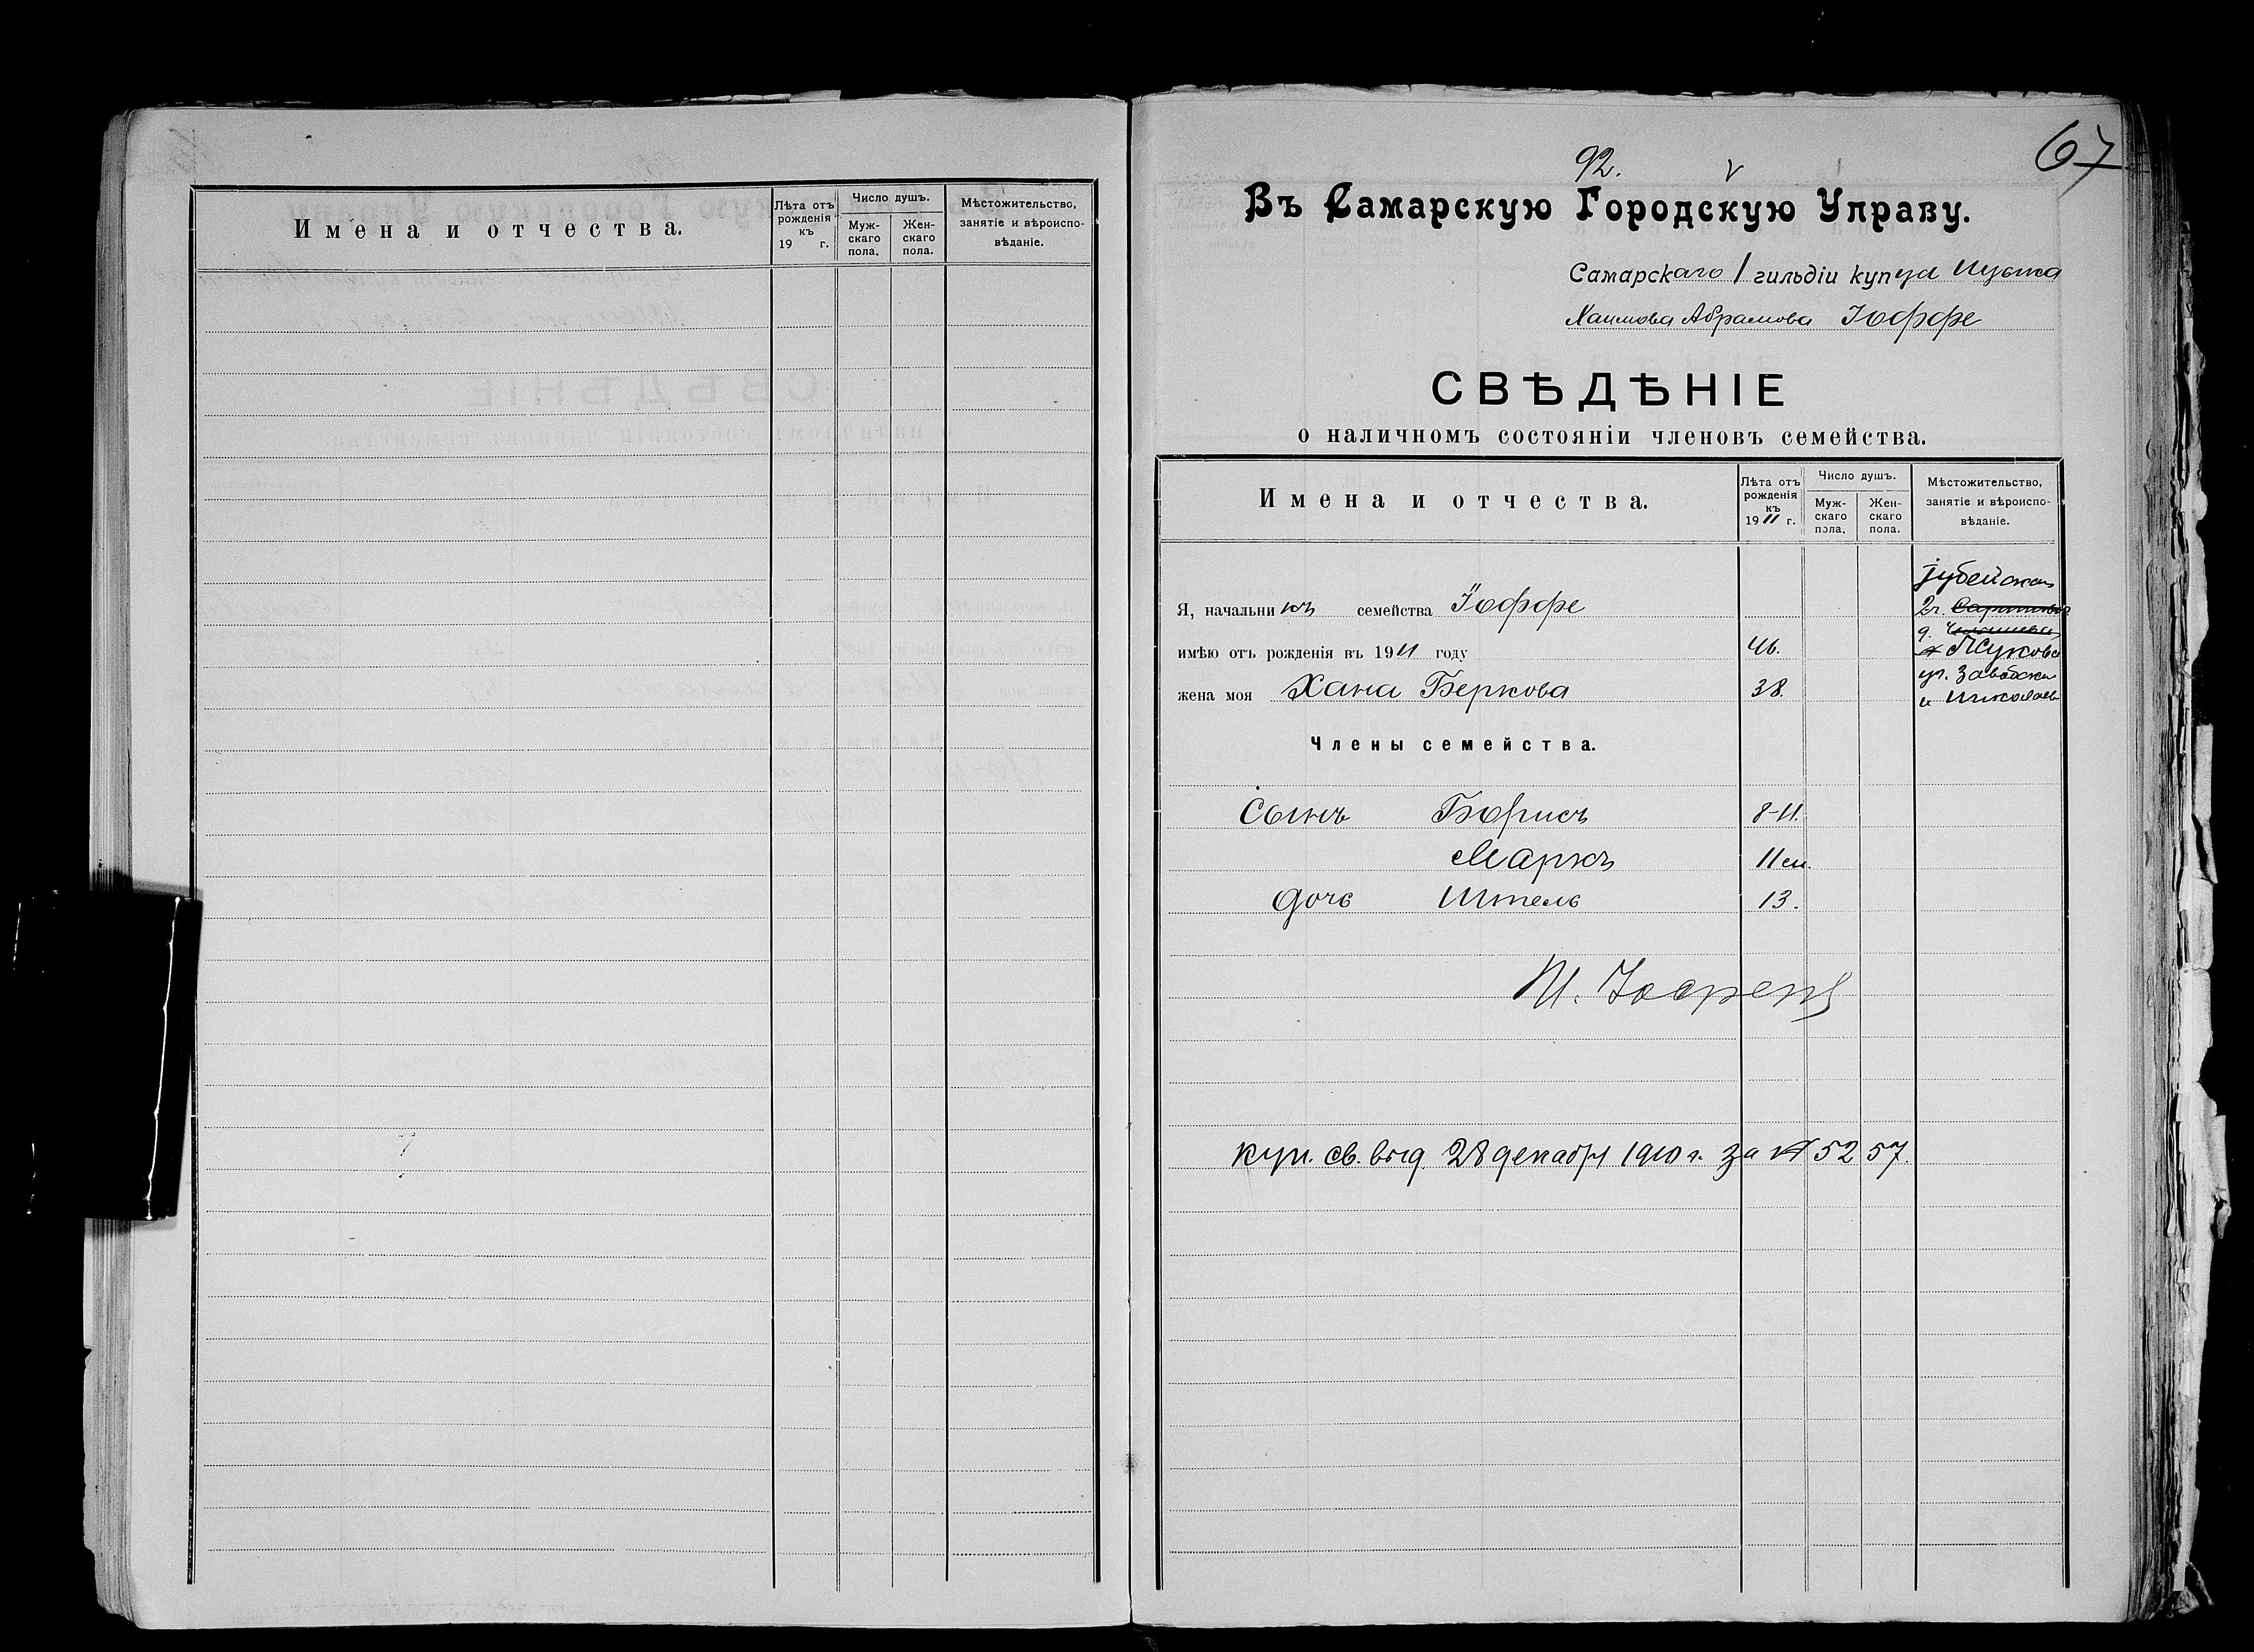 Имена и отчества.
Лѣта отъ рожденія къ 19 г.
Число душъ.
Мужскаго пола.
Женскаго пола.
Мѣстожительство, занятіе и вѣроисповѣданіе.
67
92.
Въ Самарскую Городскую Управу.
Самарскаго 1 гильдіи купца Ицька
Хаимова Абрамова Іоффе
СВѢДѢНІЕ
о наличномъ состояніи членовъ семейства.
Имена и отчества.
Лѣта отъ рожденія къ 1911 г.
Число душъ.
Мужскаго пола.
Женскаго пола.
Мѣстожительство, занятіе и вѣроисповѣданіе.
Іудейская
Я, начальникъ семейства Іоффе
2ч.
имѣю отъ рожденія въ 1911 году 46.
д. Жукова
жена моя Хана Беркова 38.
уг. Заводск
и Николаев
Члены семейства.
Сынъ Борисъ 8-11.
Маркъ 11 м.
дочь Итель 13.
И. Іоффе
куп. св. выд 28 декабря 1910 г. за № 5257.